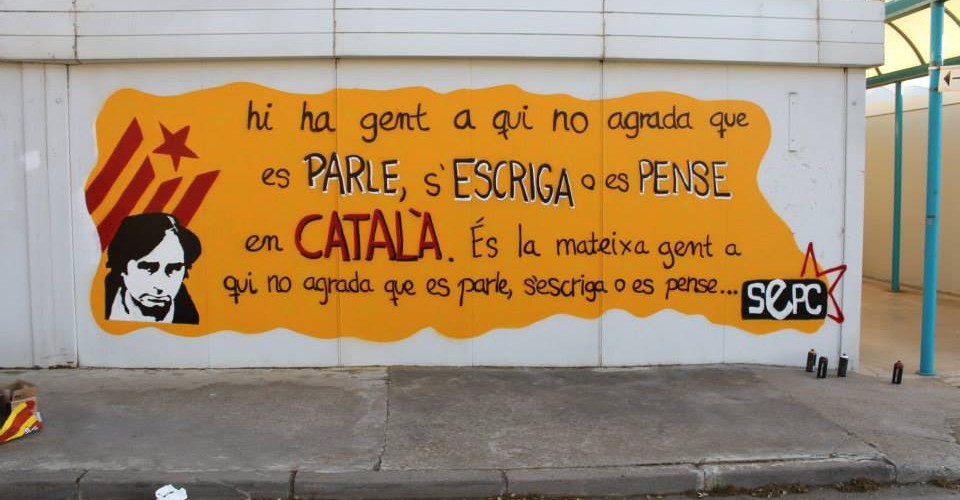 hi ha gent a qui no agrada que
es PARLE, s'ESCRIGA o es PENSE
en CATALÀ. És la mateixa gent a
qui no agrada que es parle, s'escriga o es pense...
SePC